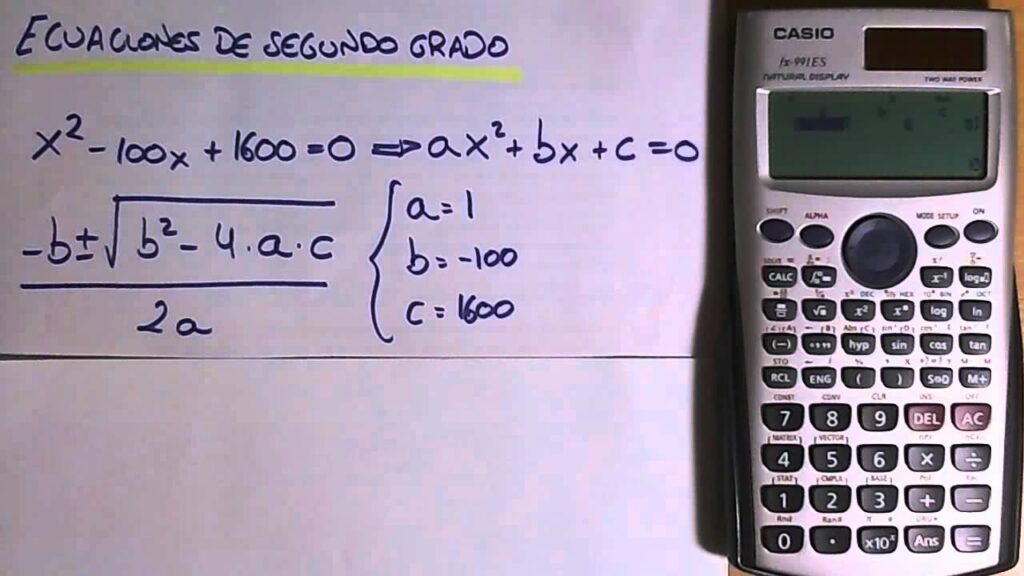 ECUACIONES DE SEGUNDO GRADO
x² - 100x + 1600 = 0 ⇒ ax² + bx + c = 0
-b ± √b² - 4·a·c
2a
a = 1
b = -100
c = 1600
CASIO
fx-991ES
NATURAL DISPLAY
TWO WAY POWER
SHIFT ALPHA MODE SETUP ON
CALC x⁻¹ log
√ x² log ln
(−) hyp sin cos tan
STO
RCL ENG ( ) S⇔D M+
CONST CONV CLR INS OFF
7 8 9 DEL AC
MATRIX VECTOR
4 5 6 × ÷
STAT CMPLX BASE
1 2 3 + −
Rnd Ran#
0 . ×10ˣ Ans =